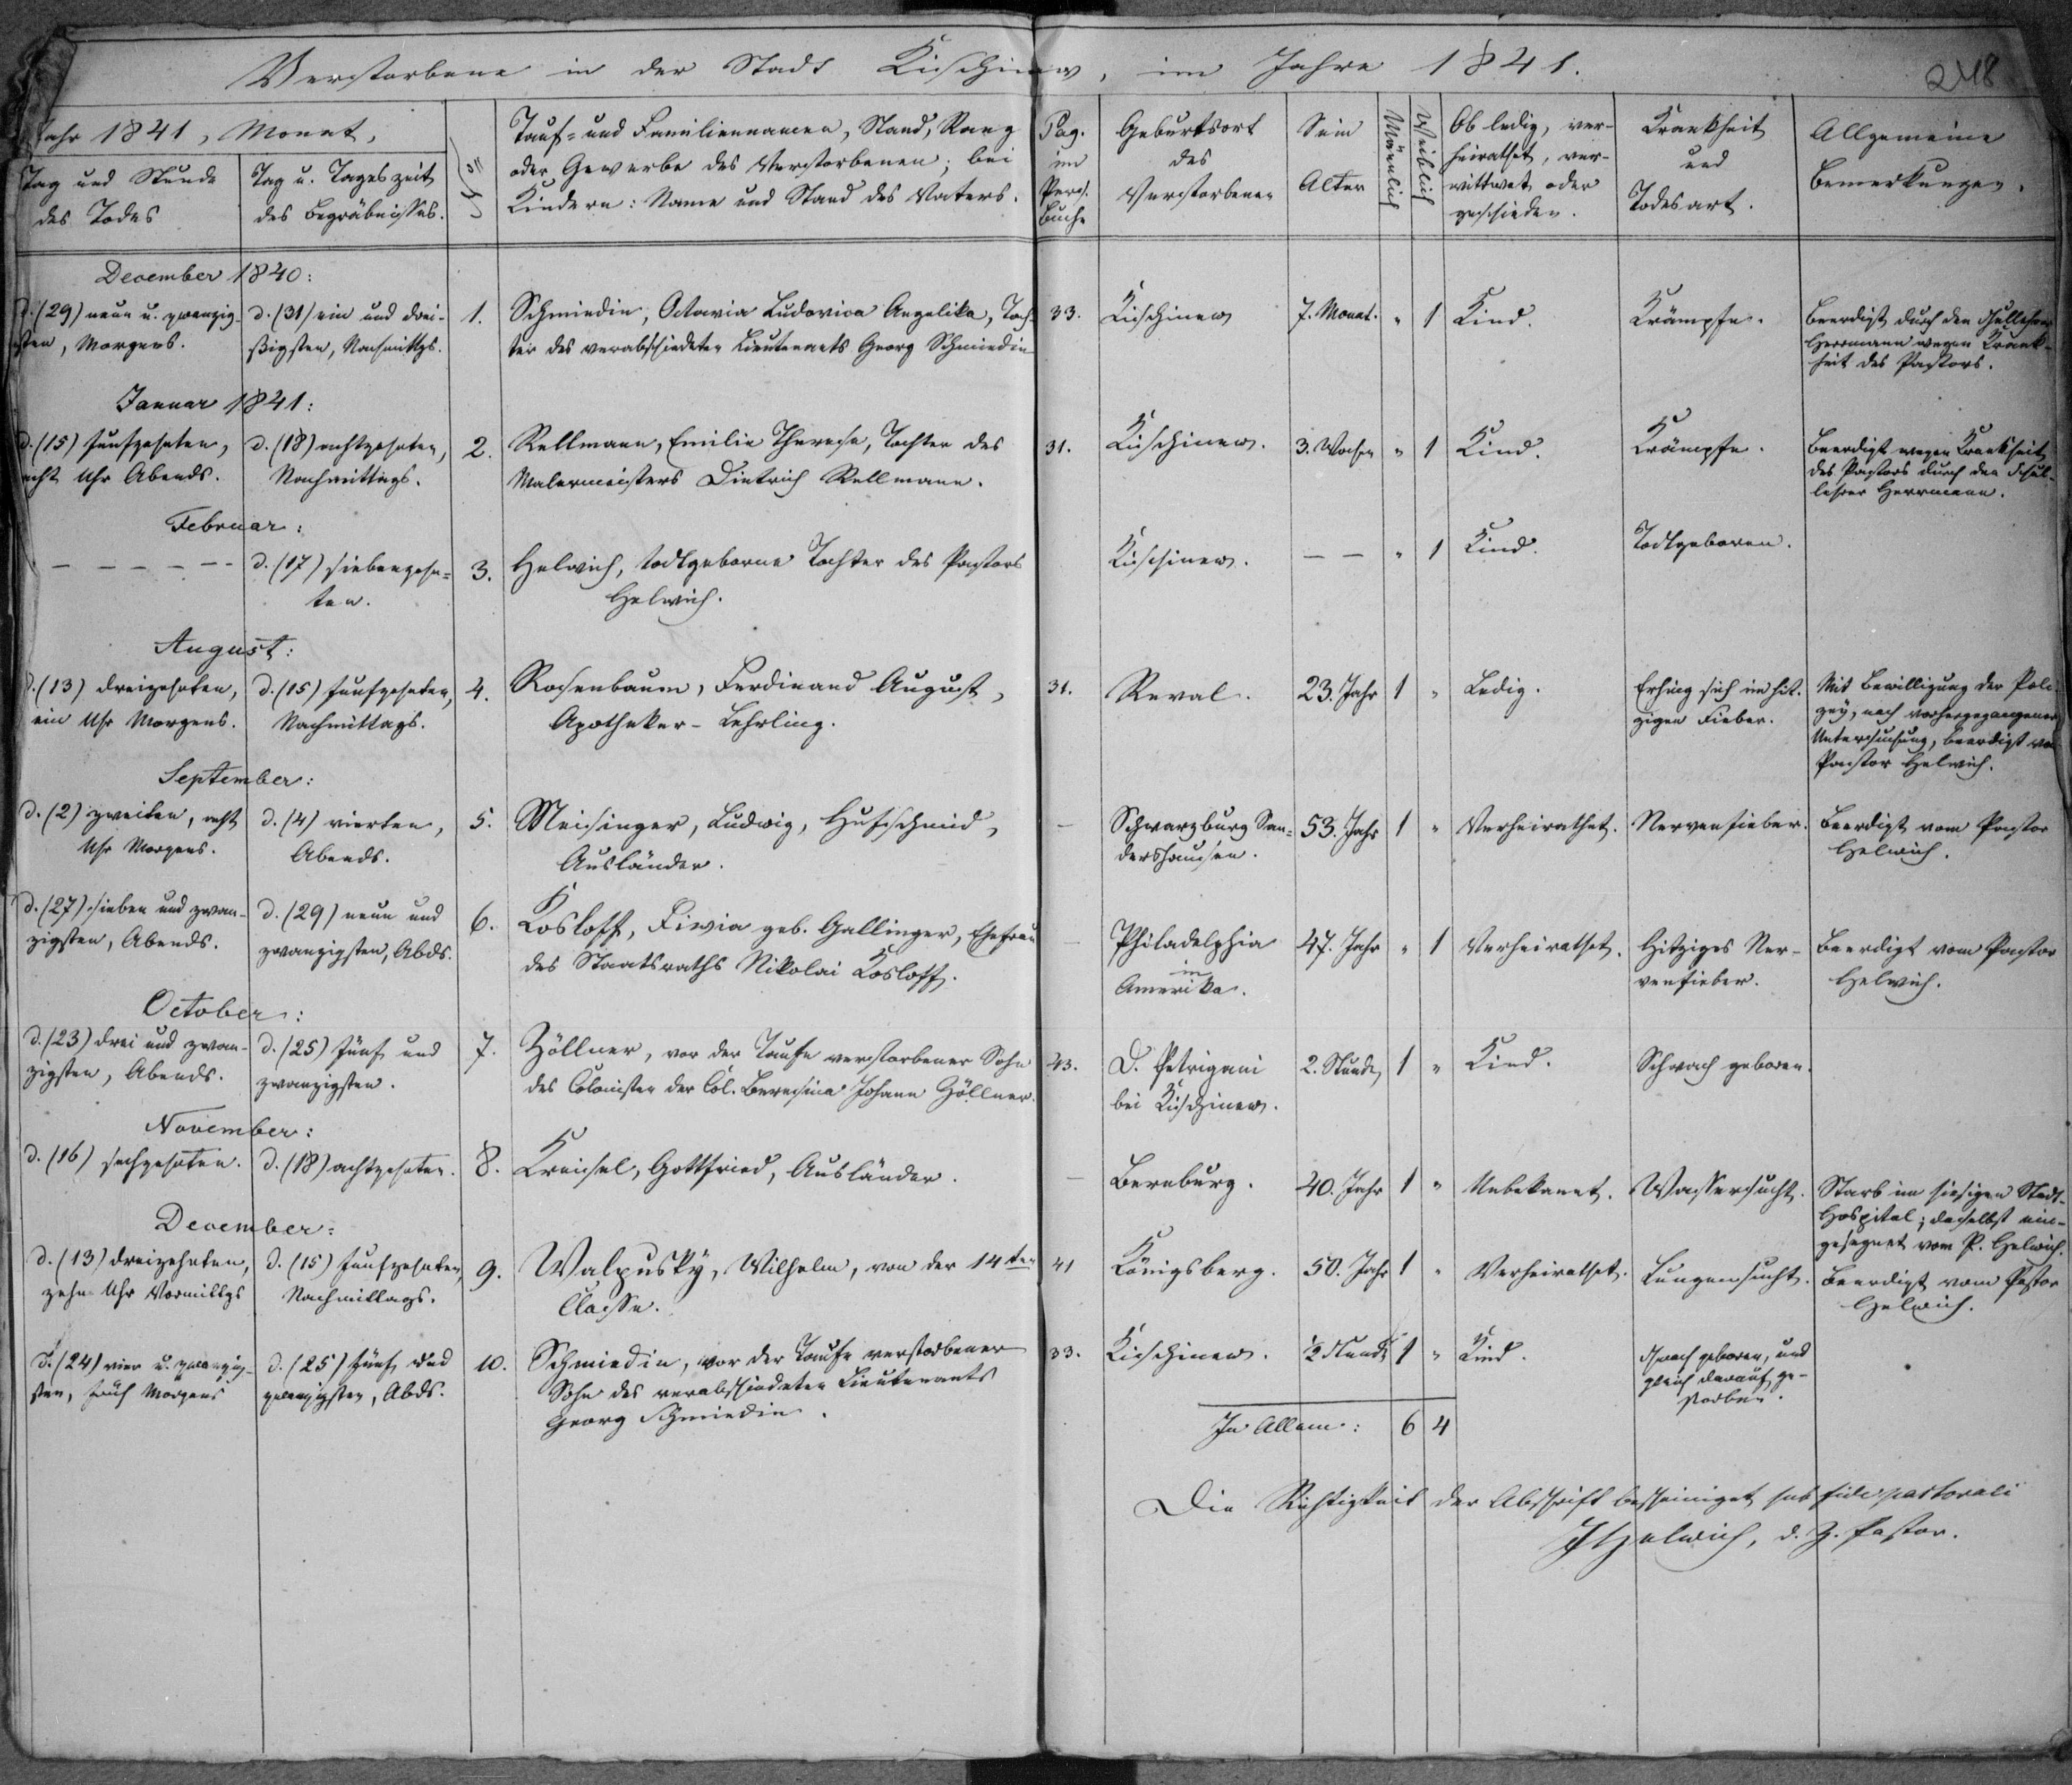 Verstorbene in der Stadt Kischinew, im Jahre 1841.
248
Jahr 1841, Monat,
Tag und Stunde
des Todes
Tag u. Tageszeit
des Begräbnisses.
Tauf- und Familiennamen, Stand, Rang
oder Gewerbe des Verstorbenen; bei
Kindern: Name und Stand des Vaters.
Pag.
im
Pers.
Buche
Geburtsort
des
Verstorbenen
Sein
Alter
Männlich
Weiblich
Ob ledig, ver-
heirathet, ver-
wittwet oder
geschieden.
Krankheit
und
Todesart.
Allgemeine
Bemerkungen.
December 1840:
d. (29) neun u. zwanzig-
sten, Morgens.
d. (31) ein und drei-
ßigsten, Nachmittgs.
1.
Schmiedin, Octavia Ludovica Angelika, Toch-
ter des verabschiedeten Lieutenants Georg Schmiedin
33.
Kischinew
7. Monat.
" 1
Kind.
Krämpfe.
Beerdigt durch den Schullehrer
Herrmann wegen Krank-
heit des Pastors.
Januar 1841:
d. (15) funfzehnten,
acht Uhr Abends.
d. (18) achtzehnten,
Nachmittags.
2.
Rellmann, Emilie Therese, Tochter des
Malermeisters Dietrich Rellmann.
31.
Kischinew.
3. Wochen
" 1
Kind.
Krämpfe.
Beerdigt wegen Krankheit
des Pastors durch den Schul-
lehrer Herrmann.
Februar:
— — — — — —
d. (17) siebenzehn-
ten.
3.
Helwich, todtgeborne Tochter des Pastors
Helwich.
Kischinew.
— —
" 1
Kind.
Todtgeboren.
August:
d. (13) dreizehnten,
ein Uhr Morgens.
d. (15) funfzehnten,
Nachmittags.
4.
Rosenbaum, Ferdinand August,
Apotheker-Lehrling.
31.
Reval.
23. Jahr
1 "
Ledig.
Erhing sich im hit-
zigen Fieber.
Mit Bewilligung der Poli-
zey, nach vorhergegangener
Untersuchung, beerdigt von
Pastor Helwich.
September:
d. (2) zweiten, acht
Uhr Morgens.
d. (4) vierten,
Abends.
5.
Meisinger, Ludwig, Hufschmid,
Ausländer.
—
Schwarzburg Son-
dershausen.
53. Jahr
1 "
Verheirathet.
Nervenfieber.
Beerdigt vom Pastor
Helwich.
d. (27) sieben und zwan-
zigsten, Abends.
d. (29) neun und
zwanzigsten, Abds.
6.
Kosloff, Liwia geb. Gallinger, Ehefrau
des Staatsraths Nikolai Kosloff.
—
Philadelphia
in
Amerika.
47. Jahr
" 1
Verheirathet.
Hitziges Ner-
venfieber.
Beerdigt vom Pastor
Helwich.
October:
d. (23) drei und zwan-
zigsten, Abends.
d. (25) fünf und
zwanzigsten.
7.
Zöllner, vor der Taufe verstorbener Sohn
des Colonisten der Col. Beresina Johann Zöllner.
43.
D. Petrigani
bei Kischinew.
2. Stunde,
1 "
Kind.
Schwach geboren.
November:
d. (16) sechzehnten.
d. (18) achtzehnten.
8.
Kreisel, Gottfried, Ausländer.
—
Bernburg.
40. Jahr
1 "
Unbekannt.
Wassersucht.
Starb im hiesigen Stadt-
Hospital; daselbst ein-
gesegnet vom P. Helwich.
December:
d. (13) dreizehnten,
zehn Uhr Vormittgs
d. (15) funfzehnten,
Nachmittags.
9.
Walpusky, Wilhelm, von der 14ten
Classe.
41
Königsberg.
50. Jahr
1 "
Verheirathet.
Lungensucht.
Beerdigt vom Pastor
Helwich.
d. (24) vier u. zwanzig-
sten, früh Morgens
d. (25) fünf und
zwanzigsten, Abds.
10.
Schmiedin, vor der Taufe verstorbener
Sohn des verabschiedeten Lieutenants
Georg Schmiedin.
33.
Kischinew.
½ Stunde
1 "
Kind.
Schwach geboren, und
gleich darauf ge-
storben.
In Allem: 6 4
Die Richtigkeit der Abschrift bescheiniget sub fide pastorali
Helwich, d. Z. Pastor.